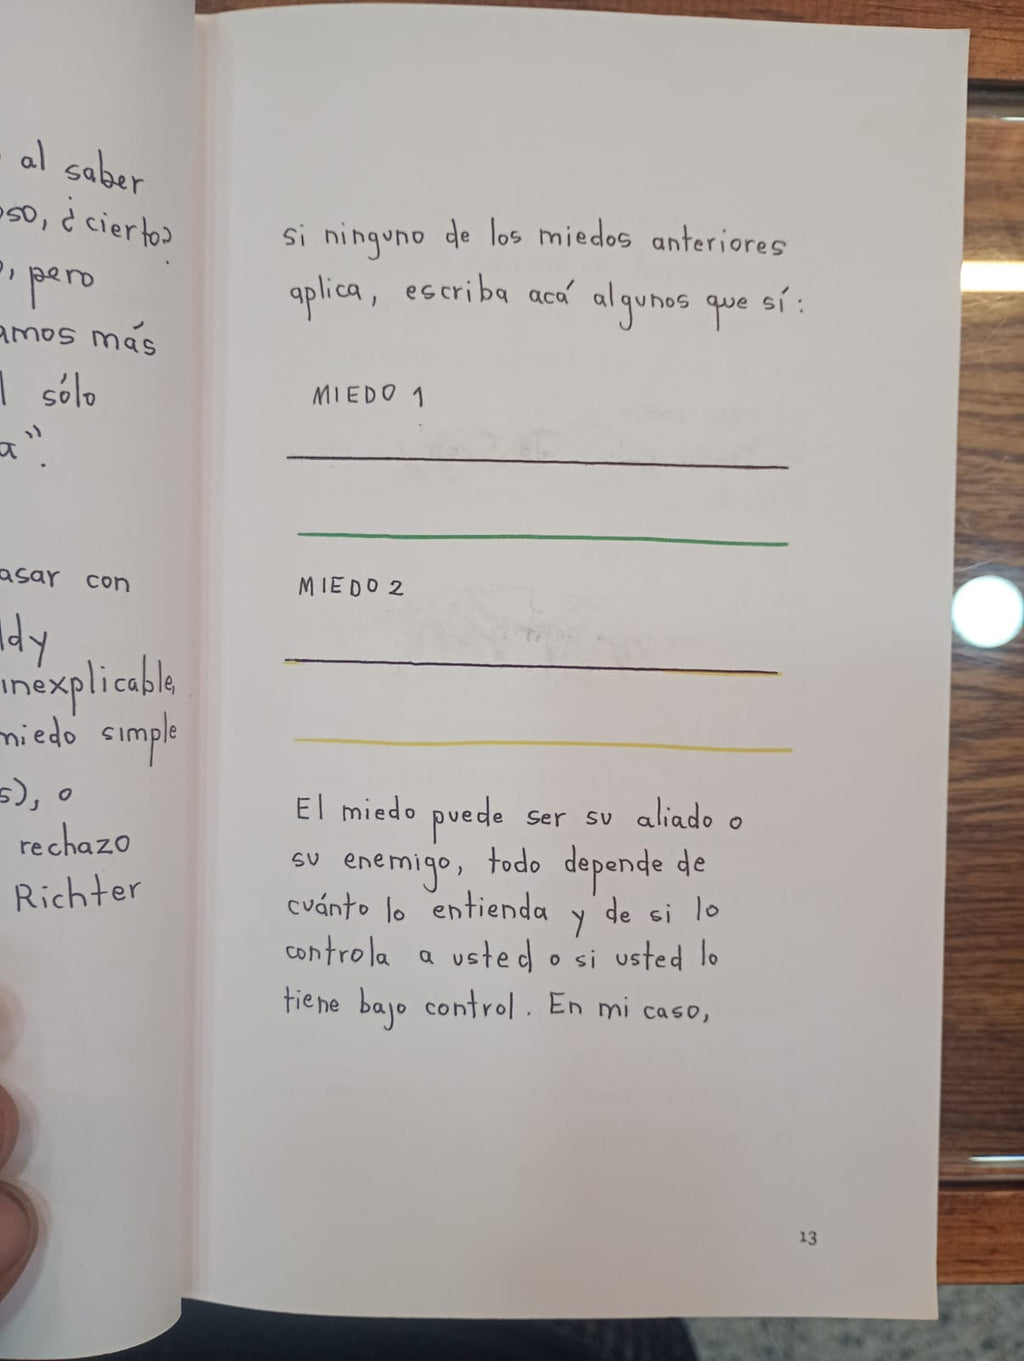 al saber
oso, ¿cierto?
, pero
amos más
sólo
a”.
asar con
ldy
inexplicable,
miedo simple
s), o
rechazo
Richter
si ninguno de los miedos anteriores
aplica, escriba acá algunos que sí:
MIEDO 1
MIEDO 2
El miedo puede ser su aliado o
su enemigo, todo depende de
cuánto lo entienda y de si lo
controla a usted o si usted lo
tiene bajo control. En mi caso,
13